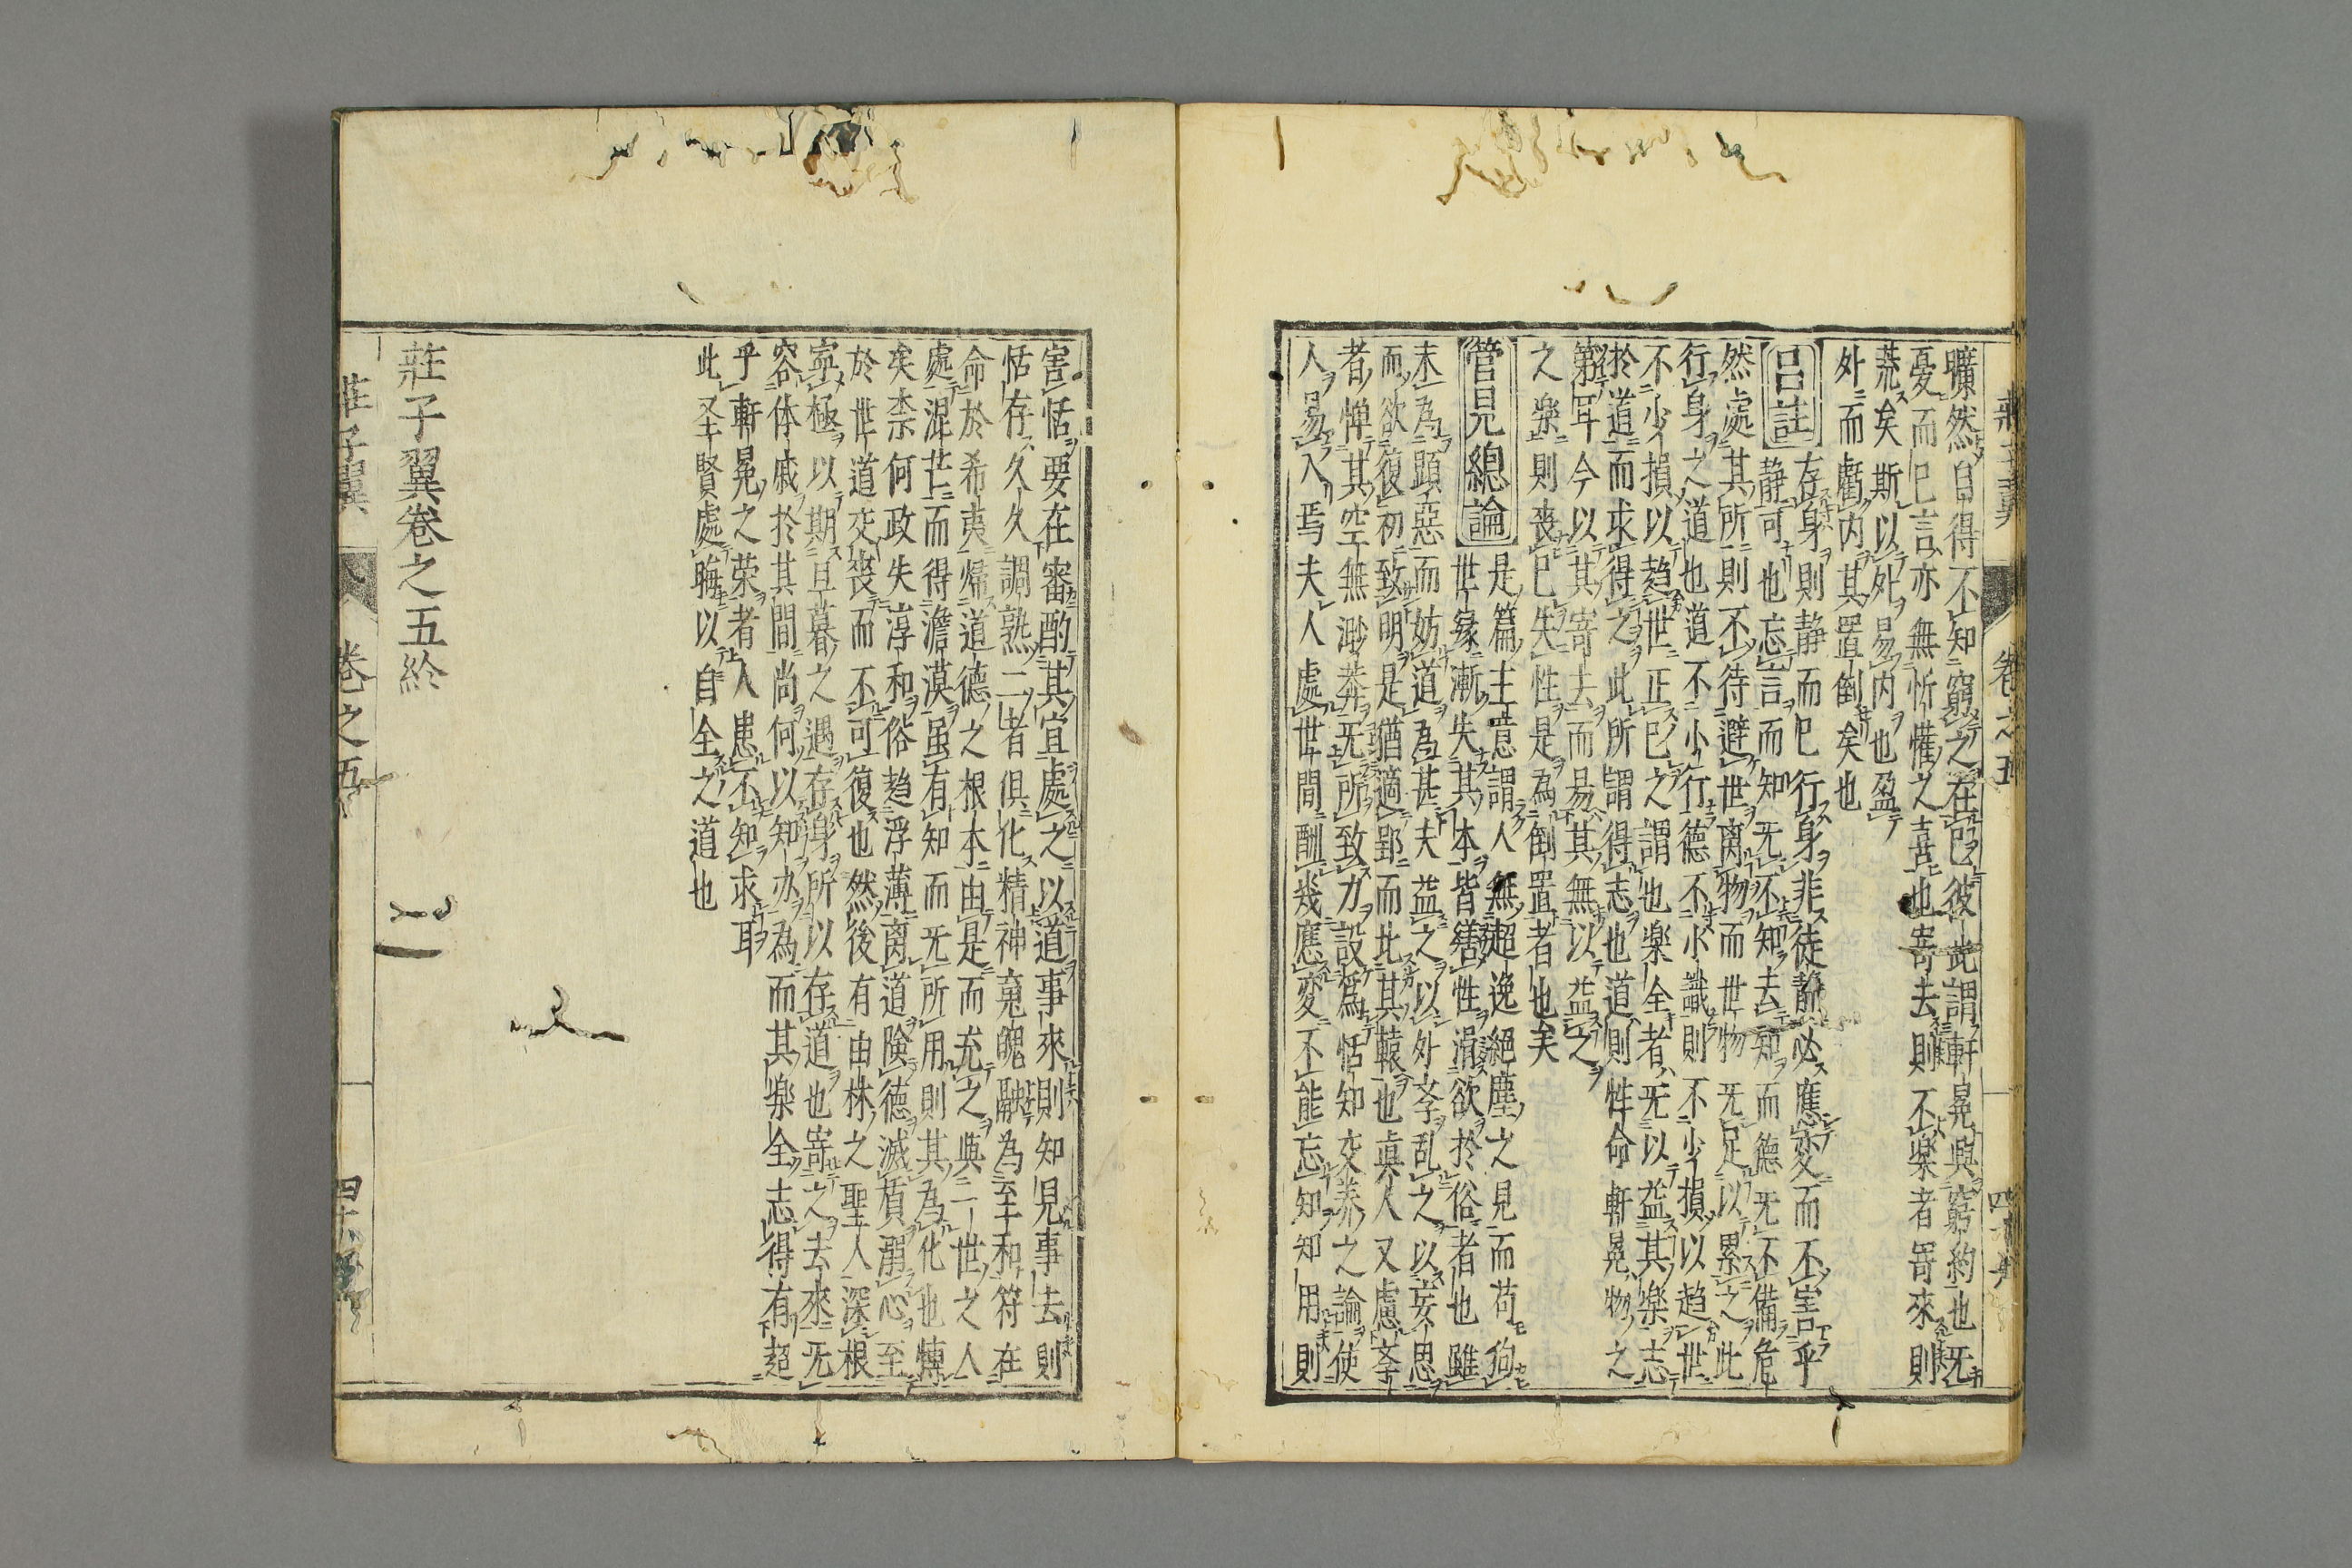 曠然自得不知窮之在己彼此謂軒冕與窮約也旡
憂而已言亦無忻懽之喜也寄去則不楽者寄來則
荒矣斯以外易内也盈
外而虧内其置倒矣也
呂註 存身則静而已行身非徒静必應変而不害乎
静可也忘言而知旡不知去知而徳旡不備危
然處其所則不待避世离物而世物旡足以累之此
行身之道也道不小行徳不小識則不少損以趋世
不少損以趋世正己之謂也楽全者旡以益其楽志
於道而求得之此所謂得志也道則性命軒冕物之
第耳今以其寄去而易其無以益之
之楽則丧己失性是為倒置者也矣
管見總論 是篇主意謂人無超逸絕塵之見而苟狥
世縁漸失其本皆繕性滑欲於俗者也雖
未為顕惡而妨道為甚夫益之以外文乱之以妄思
而欲復初致明是猶適郢而北其轅也真人又慮
者憚其空無渺莽旡所致力設為恬知交养之論使
人易入焉夫人處世間酬幾應変不能忘知知用則
害恬要在審酌其宜處之以道事來則知見事去則
恬存久久調熟二者俱化精神䰟魄融為至和符在
命於希夷帰道德之根本由是而充之與二世之人
處混芒而得澹漠虽有知而旡所用則其為化也
矣柰何政失淳和俗趋浮薄离道険徳滅質溺心至
於世道交丧而不可復也然後有由林之聖人深根
寧極以期旦暮之遇存身所以存道也寄之去來旡
容休戚於其間尚何以知亦為而其楽全志得有超
乎軒冕之荣者人患不知求耳
此圣賢處晦以自全之道也
莊子翼卷之五終
莊子翼 卷之五
莊子翼 卷之五